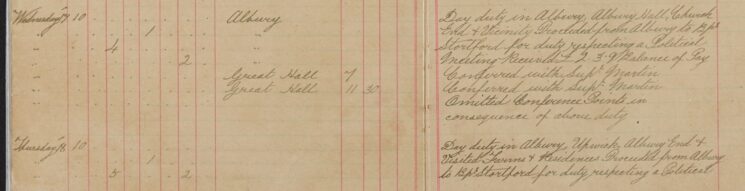 Wednesday 17 10 Albury Day duty in Albury, Albury Hall, Church
" 1 " End & Vicinity Proceeded from Albury to Bps
" 4 " Stortford for duty respecting a Political
" 2 " Meeting Received £2-3-9 Balance of Pay
" Great Hall 7 Conferred with Supt Martin
" Great Hall 11 30 Conferred with Supt Martin
Omitted Conference Points in
consequence of above duty
Thursday 18 10 Day duty in Albury, Upwick, Albury End &
" 1 Visited Farms & Residences Proceeded from Albury
" 5 2 to Bps Stortford for duty respecting a Political